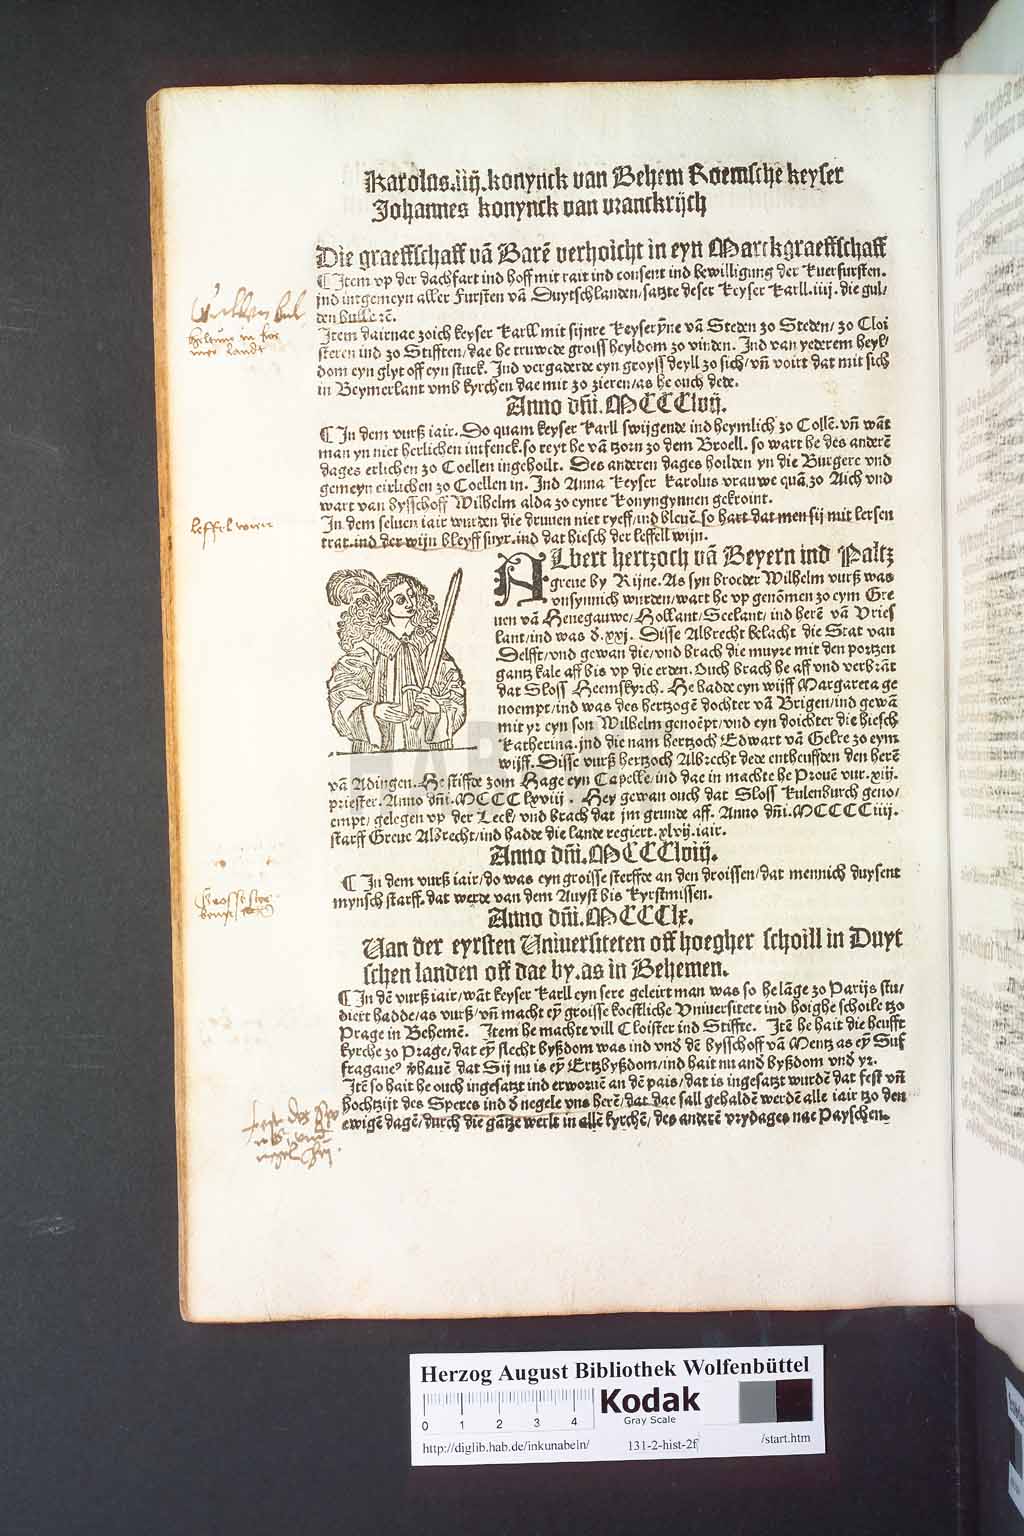 Karolus.iiij.konynck van Behem Roemsche keyser
Johannes konynck van vranckrijch
Die graeffschaff vā Barē verhoicht in eyn Marckgraeffschaff
¶ Item vp der dachfart ind hoff mit rait ind consent ind bewilligung der Kuerfursten.
jnd intgemeyn aller Fursten vā Duytschlanden/satzte deser Keyser Karll.iiij.die gul/
den bulle ꝛc̄.
Item dairnae zoich keyser Karll mit sijnre Keyserȳne vā Steden zo Steden/zo Cloi
steren ind zo Stifften/dae he truwede groiss heyldom zo vinden. Ind van yederem heyl/
dom eyn glyt off eyn stuck. Ind vergaderde eyn groyss deyll zo sich/vn̄ voirt dat mit sich
in Beymerlant vmb kyrchen dae mit zo zieren/as he ouch dede.
Anno dn̄i.MCCCLvij.
¶ In dem vurß iair. Do quam keyser Karll swijgende ind heymlich zo Collē.vn̄ wāt
man yn niet herlichen intfenck.so reyt he vā tzorn zo dem Broell. so wart he des anderē
dages erlichen zo Coellen ingehoilt. Des anderen dages hoilden yn die Burgere vnd
gemeyn eirlichen zo Coellen in. Ind Anna Keyser Karolus vrauwe quā zo Aich vnd
wart van bysschoff Wilhelm alda zo eynre Konyngynnen gekroint.
In dem seluen iair wurden die druuen niet ryeff/ind bleuē so hart dat men sij mit kersen
trat.ind der wijn bleyff suyr.ind dat hiesch der leffell wijn.
ALbert hertzoch vā Beyern ind Paltz
greue by Rijne. As syn broeder Wilhelm vurß was
vnsynnich wurden/wart he vp genōmen zo eym Gre
uen vā Henegauwe/Hollant/Seelant/ind herē vā Vries
lant/ind was d̄.xxj. Disse Albrecht belacht die Stat van
Delfft/vnd gewan die/vnd brach die muyre mit den portzen
gantz kale aff bis vp die erden. Ouch brach he aff vnd verbrāt
dat Sloss Heemskyrch. He hadde eyn wijff Margareta ge
noempt/ind was des hertzogē dochter vā Brigen/ind gewā
mit yr eyn son Wilhelm genoēpt/vnd eyn doichter die hiesch
Katherina.jnd die nam hertzoch Edwart vā Gelre zo eym
wijff. Disse vurß hertzoch Albrecht dede entheuffden den herē
vā Adingen. He stiffde zom Hage eyn Capelle/ind dae in machte he Prouē vur.xiij.
priester. Anno dn̄i.MCCCClxviij. Hey gewan ouch dat Sloss Kulenburch geno/
empt/gelegen vp der Leck/vnd brach dat jm grunde aff. Anno dn̄i.MCCCCiiij.
starff Greue Albrecht/ind hadde die lande regiert.xlvij.iair.
Anno dn̄i.MCCCLviij.
¶ In dem vurß iair/do was eyn groisse sterffde an den droissen/dat mennich duysent
mynsch starff.dat werde van dem Auyst bis Kyrstmissen.
Anno dn̄i.MCCCLx.
Van der eyrsten Vniuersiteten off hoegher schoill in Duyt
schen landen off dae by.as in Behemen.
¶ In dē vurß iair/wāt keyser Karll eyn sere geleirt man was so he lāge zo Parijs stu/
diert hadde/as vurß/vn̄ macht eȳ groisse koestliche Vniuersitete ind hoighe schoile tzo
Prage in Behemē. Item he machte vill Cloister ind Stiffte. Itē he hait die heufft
kyrche zo Prage/dat eȳ slecht byßdom was ind vnd dē bysschoff vā Mentz as eȳ Suf
fraganeꝰ v̄hauē dat Sij nu is eȳ Ertzbyßdom/ind hait nu and byßdom vnd yr.
Itē so hait he ouch ingesatzt ind erworuē an dē pais/dat is ingesatzt wurdē dat fest vn̄
hochtzijt des Speres ind d̄ negele vns herē/dat dae sall gehaldē werdē alle iair tzo den
ewigē dagē/durch die gātze werlt in allē kyrchē/des anderē vrydages nae Payschen.
leffel wein
Herzog August Bibliothek Wolfenbüttel
0 1 2 3 4
Kodak
Gray Scale
http://diglib.hab.de/inkunabeln/ 131-2-hist-2f /start.htm